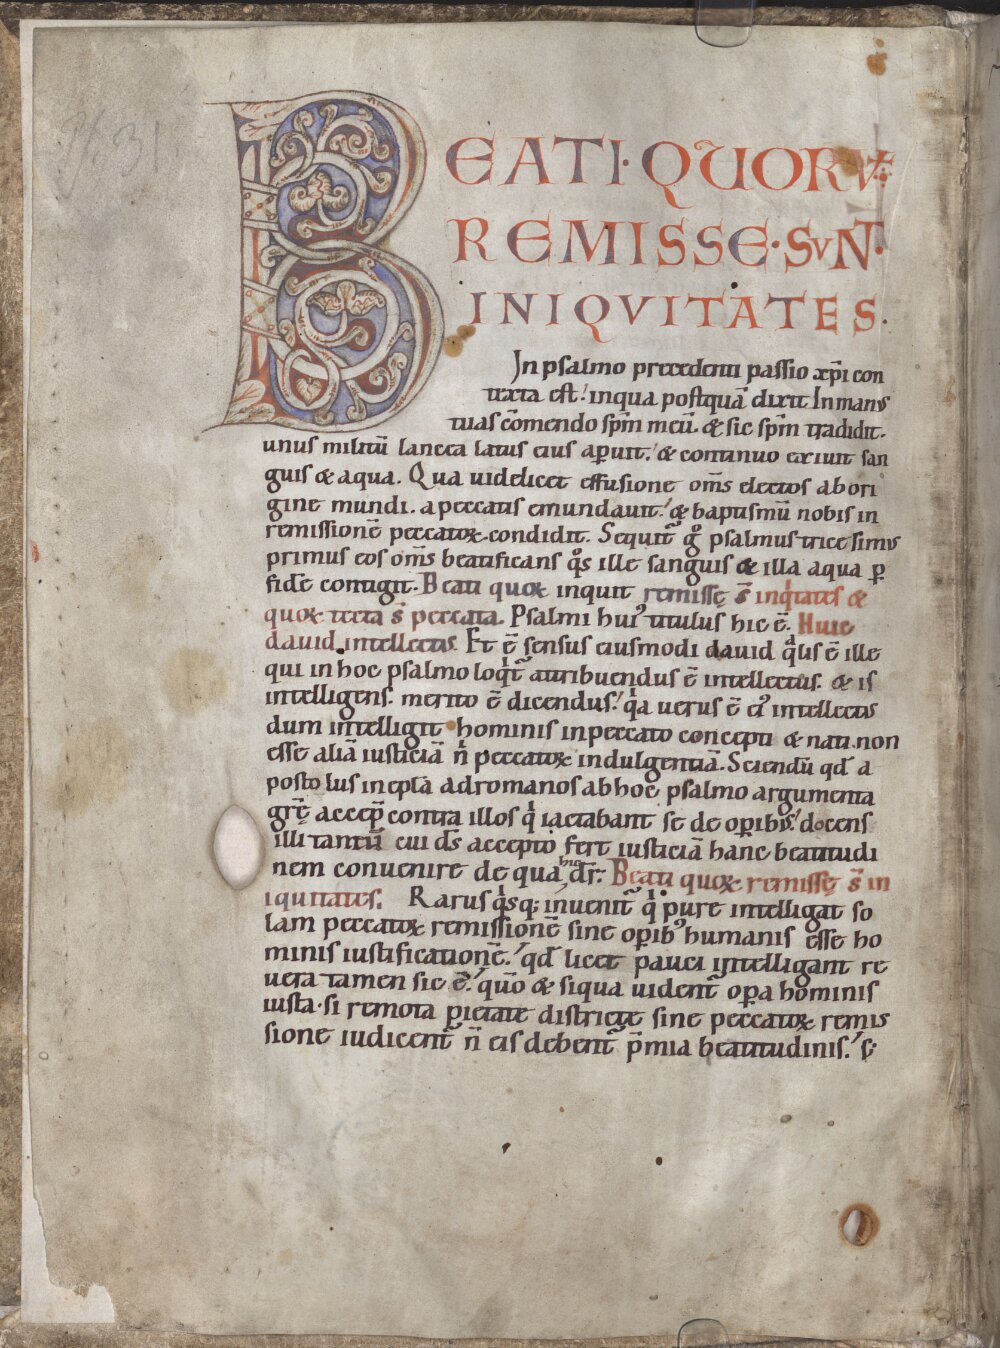 BEATI · QUORV̄
REMISSE · SVNT ·
INIQVITATES .
In psalmo precedenti passio xp̄i con
texta est; inqua postquā dixit In manus
tuas cōmendo spm̄ meū. & sic spm̄ tradidit.
unus militū lancea latus eius aꝑuit; & continuo exiuit san
guis & aqua. Qua uidelicet effusione om̄s electos ab ori
gine mundi. a peccatis emundauit; & baptismū nobis in
remissionē peccatoꝝ condidit. Sequit᷑ gͦ psalmus tricesimus
primus eos om̄s beatificans qͦs ille sanguis & illa aqua ꝑ
fidē contigit. Beati quoꝝ inquit remissę s̄ inqͥtates &
quoꝝ tecta s̄ peccata. Psalmi huiꝰ titulus hic ē. Huic
dauid intellectus. Et ē sensus eiusmodi dauid qͣlis ē ille
qui in hoc psalmo loqͥt᷑ attribuendus ē intellectus. & is
intelligens. merito ē dicendus; qͥa uerus ē eiꝰ intellectus
dum intelligit hominis in peccato concepti & nati. non
esse aliā iusticiā nͥ peccatoꝝ indulgentiā. Sciendū qd̄ a
postolus in epl̄a ad romanos ab hoc psalmo argumenta
grē accep̄ contra illos qͥ iactabant se de oꝑibꝰ; docens
illi tantū cui ds̄ accepto fert iusticiā hanc beatitudi
nem conuenire de qua hic dr̄. Beati quoꝝ remissę s̄ in
iquitates. Rarus qͥsq; inuenit᷑ qͥ pure intelligat so
lam peccatoꝝ remissionē sine oꝑibꝰ humanis esse ho
minis iustificationē; qd̄ licet pauci intelligant re
uera tamen sic ē; quō & siqua uident᷑ oꝑa hominis
iusta. si remota pietate districte sine peccatoꝝ remis
sione iudicent᷑ n̄ eis debent᷑ p̄mia beatitudinis; s;